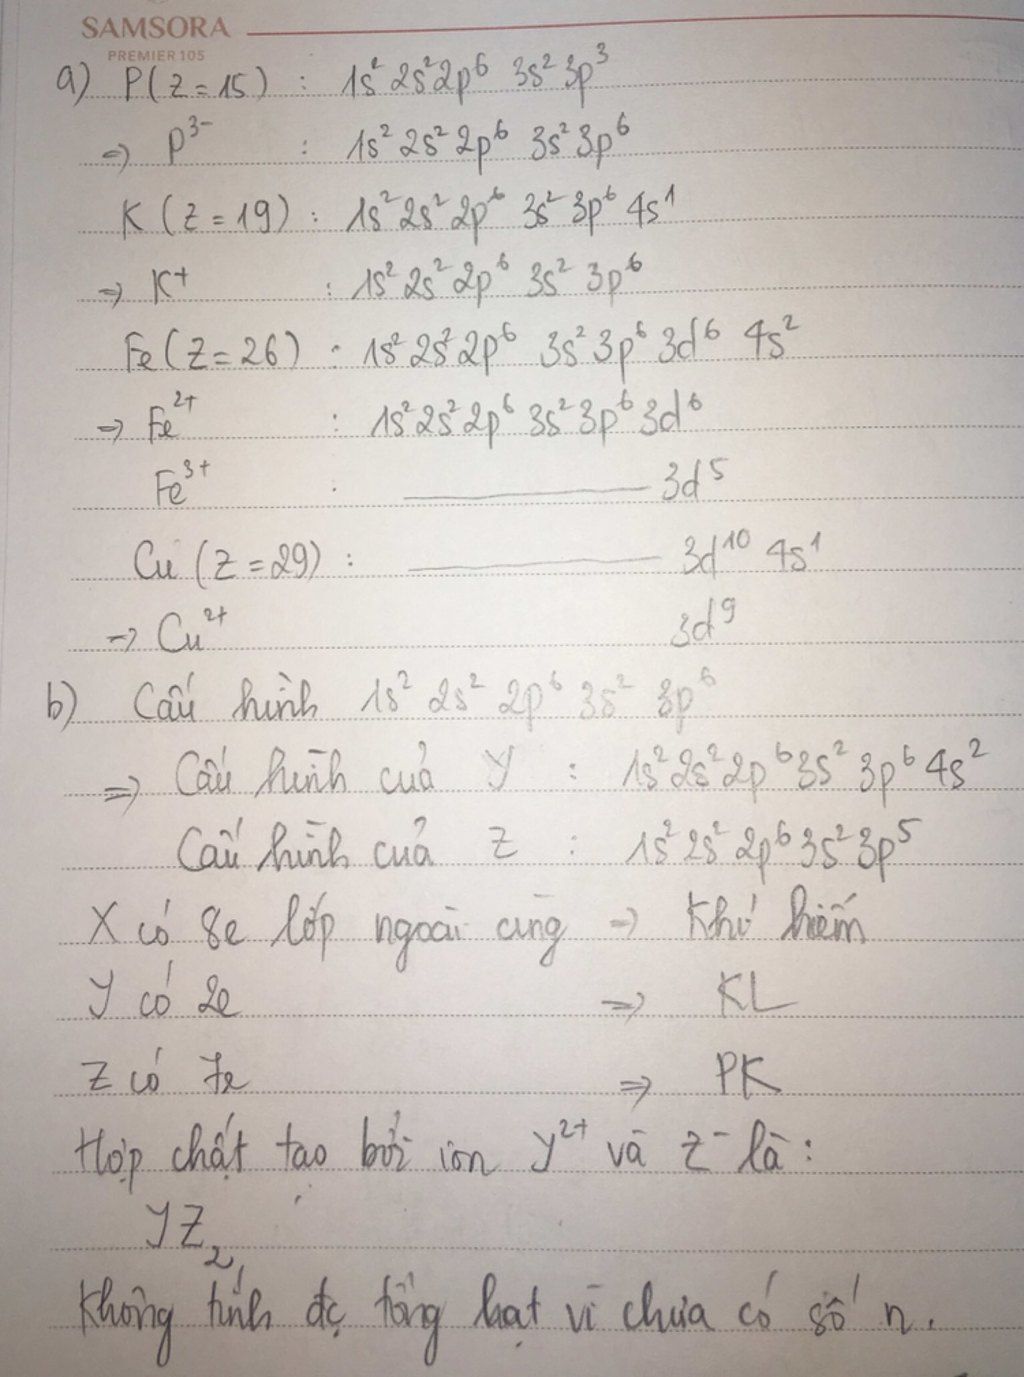 SAMSORA
PREMIER 105
a) P(Z=15) : 1s² 2s² 2p⁶ 3s² 3p³
=> P³⁻ : 1s² 2s² 2p⁶ 3s² 3p⁶
K (Z=19) : 1s² 2s² 2p⁶ 3s² 3p⁶ 4s¹
=> K⁺ : 1s² 2s² 2p⁶ 3s² 3p⁶
Fe(Z=26) : 1s² 2s² 2p⁶ 3s² 3p⁶ 3d⁶ 4s²
=> Fe²⁺ : 1s² 2s² 2p⁶ 3s² 3p⁶ 3d⁶
Fe³⁺ : ———— 3d⁵
Cu (Z=29) : ———— 3d¹⁰ 4s¹
=> Cu²⁺ 3d⁹
b) Cấu hình 1s² 2s² 2p⁶ 3s² 3p⁶
=> Cấu hình của Y : 1s² 2s² 2p⁶ 3s² 3p⁶ 4s²
Cấu hình của Z : 1s² 2s² 2p⁶ 3s² 3p⁵
X có 8e lớp ngoài cùng => Khí hiếm
Y có 2e => KL
Z có 7e => PK
Hợp chất tạo bởi ion Y²⁺ và Z⁻ là:
YZ₂
Không tính đc tổng hạt vì chưa có số n.